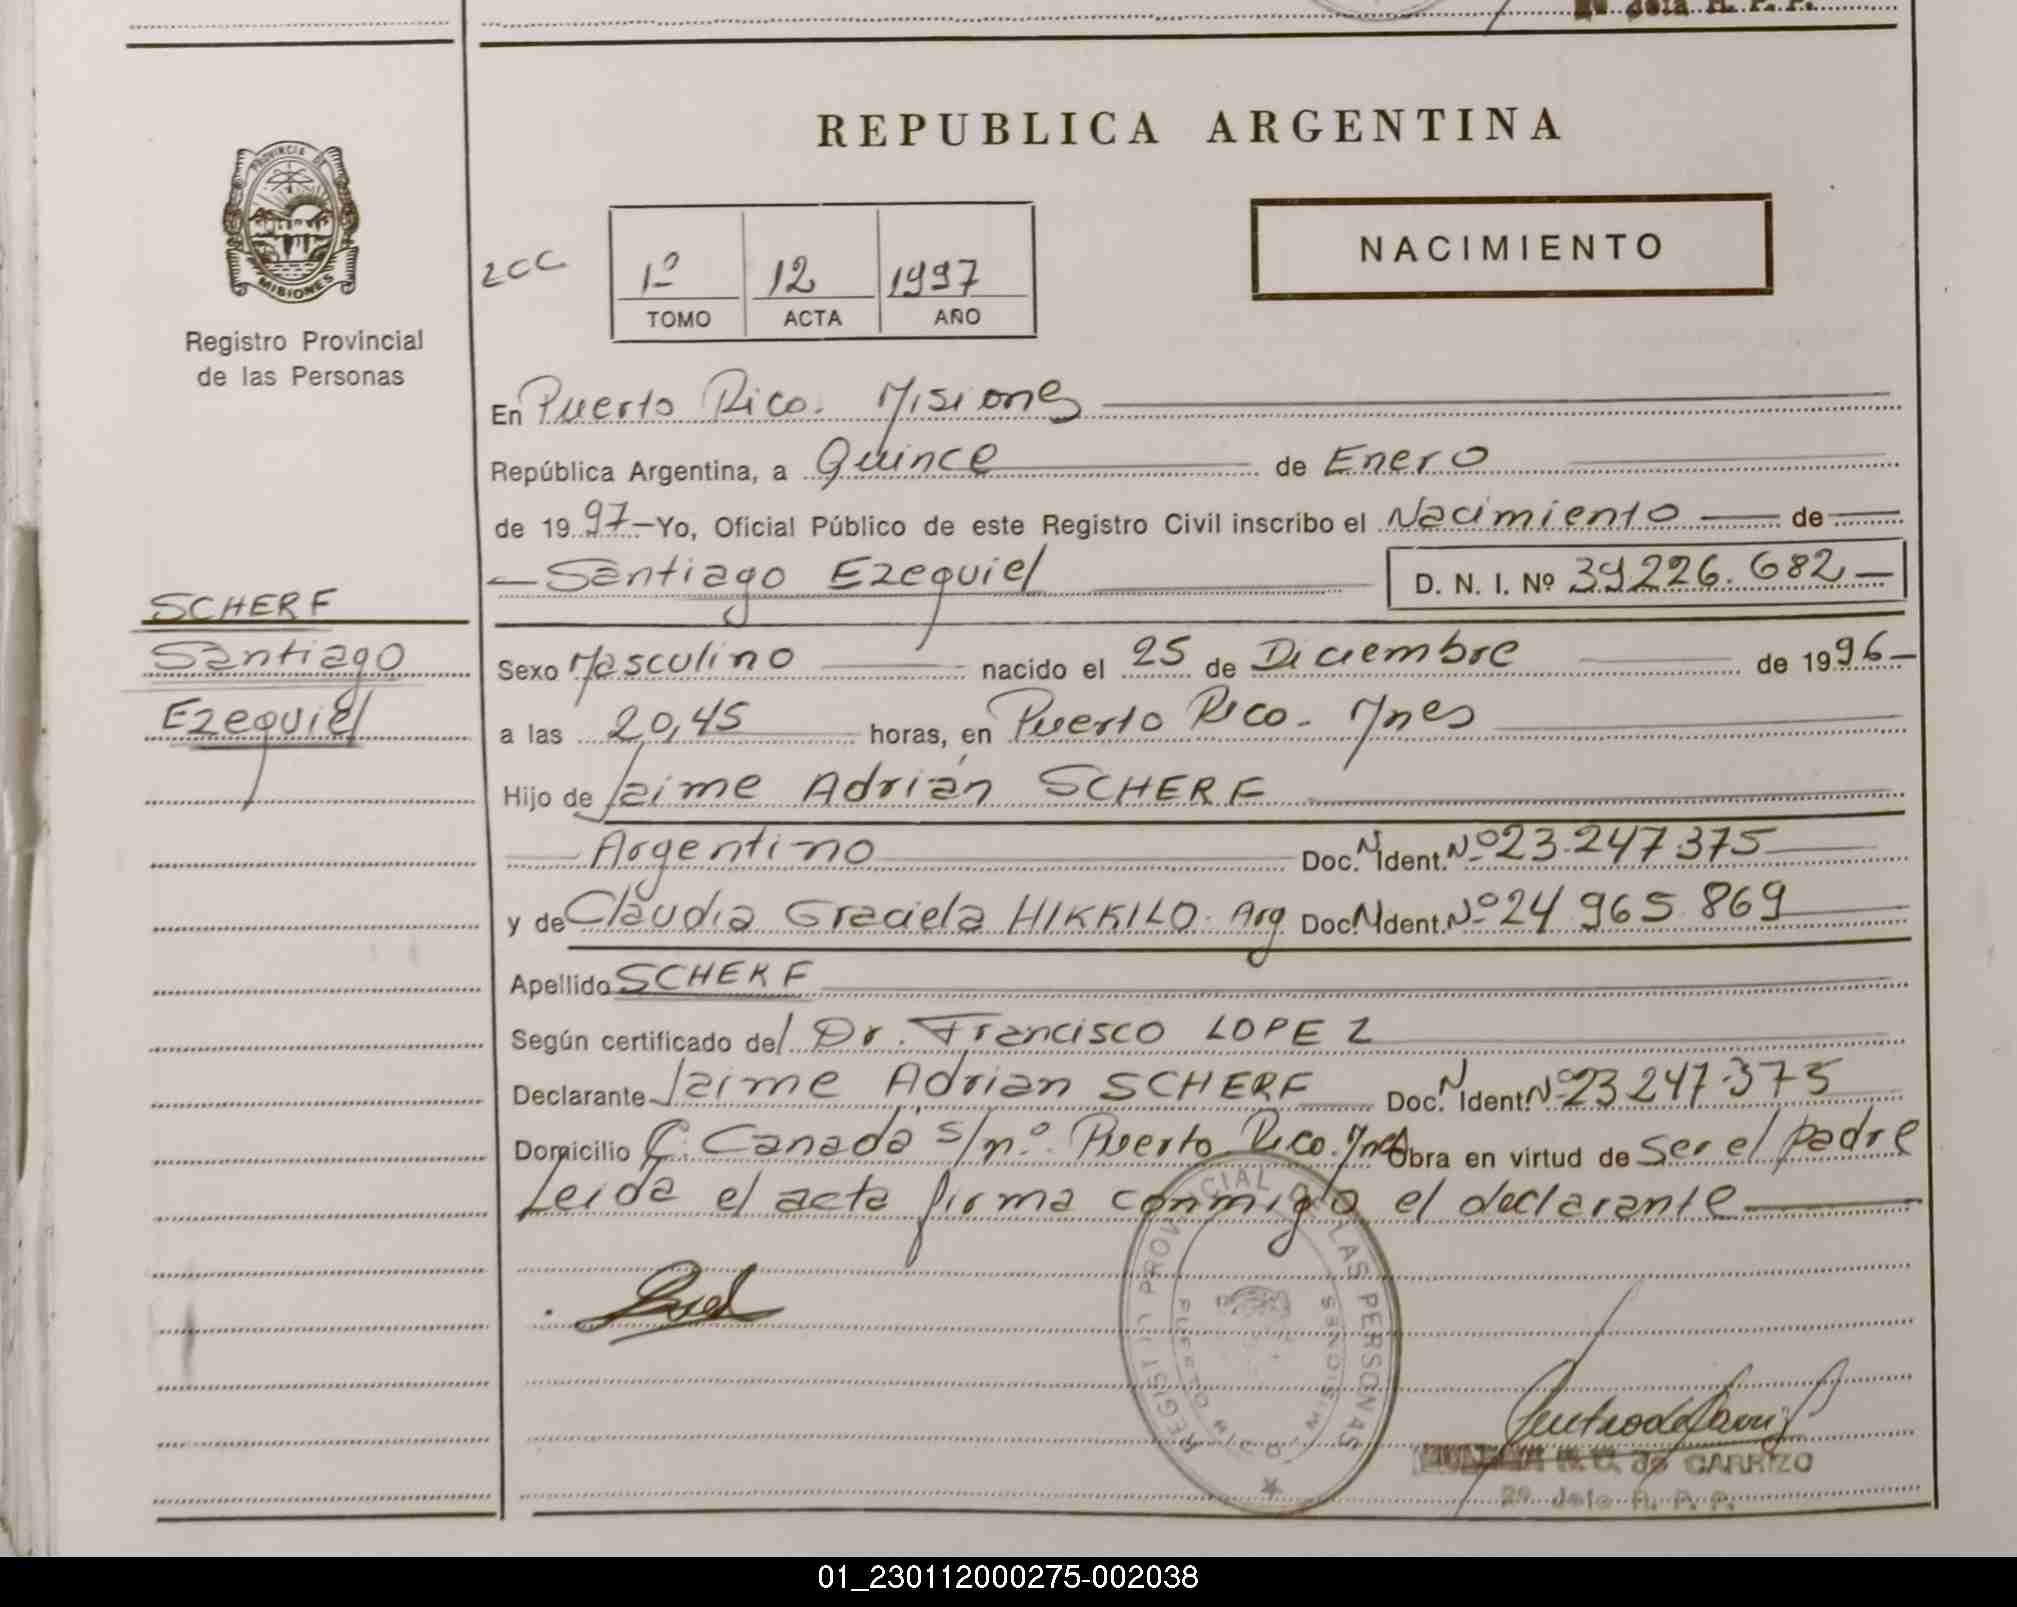 2º Jefa R. P. P.
REPUBLICA ARGENTINA
PROVINCIA DE
MISIONES
Registro Provincial
de las Personas
2CC
1º 12 1997
TOMO ACTA AÑO
NACIMIENTO
En Puerto Rico. Misiones
República Argentina, a Quince de Enero
de 1997 – Yo, Oficial Público de este Registro Civil inscribo el Nacimiento de
Santiago Ezequiel D. N. I. Nº 39226.682
SCHERF
Santiago
Ezequiel
Sexo Masculino nacido el 25 de Diciembre de 1996
a las 20,45 horas, en Puerto Rico. Mnes
Hijo de Jaime Adrián SCHERF
Argentino Doc. N Ident. Nº 23.247.375
y de Claudia Graciela HIKKILO. Arg Doc. N Ident. Nº 24 965 869
Apellido SCHERF
Según certificado del Dr. Francisco LOPEZ
Declarante Jaime Adrian SCHERF Doc. N Ident. Nº 23 247.375
Domicilio C. Canadá s/nº. Puerto Rico. Mnes Obra en virtud de ser el padre
Leída el acta firma conmigo el declarante
REGISTRO PROVINCIAL DE LAS PERSONAS
PUERTO RICO MISIONES
de CARRIZO
2º Jefa R. P. P.
01_230112000275-002038